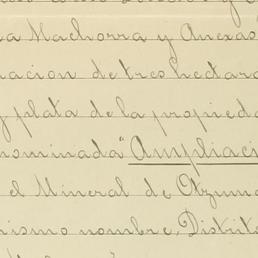 la Machorra y Anexas
uacion de tres hectara
y plata de la propieda
nominada "Ampliaci
el Mineral de Otzuma
mismo nombre, Distrito